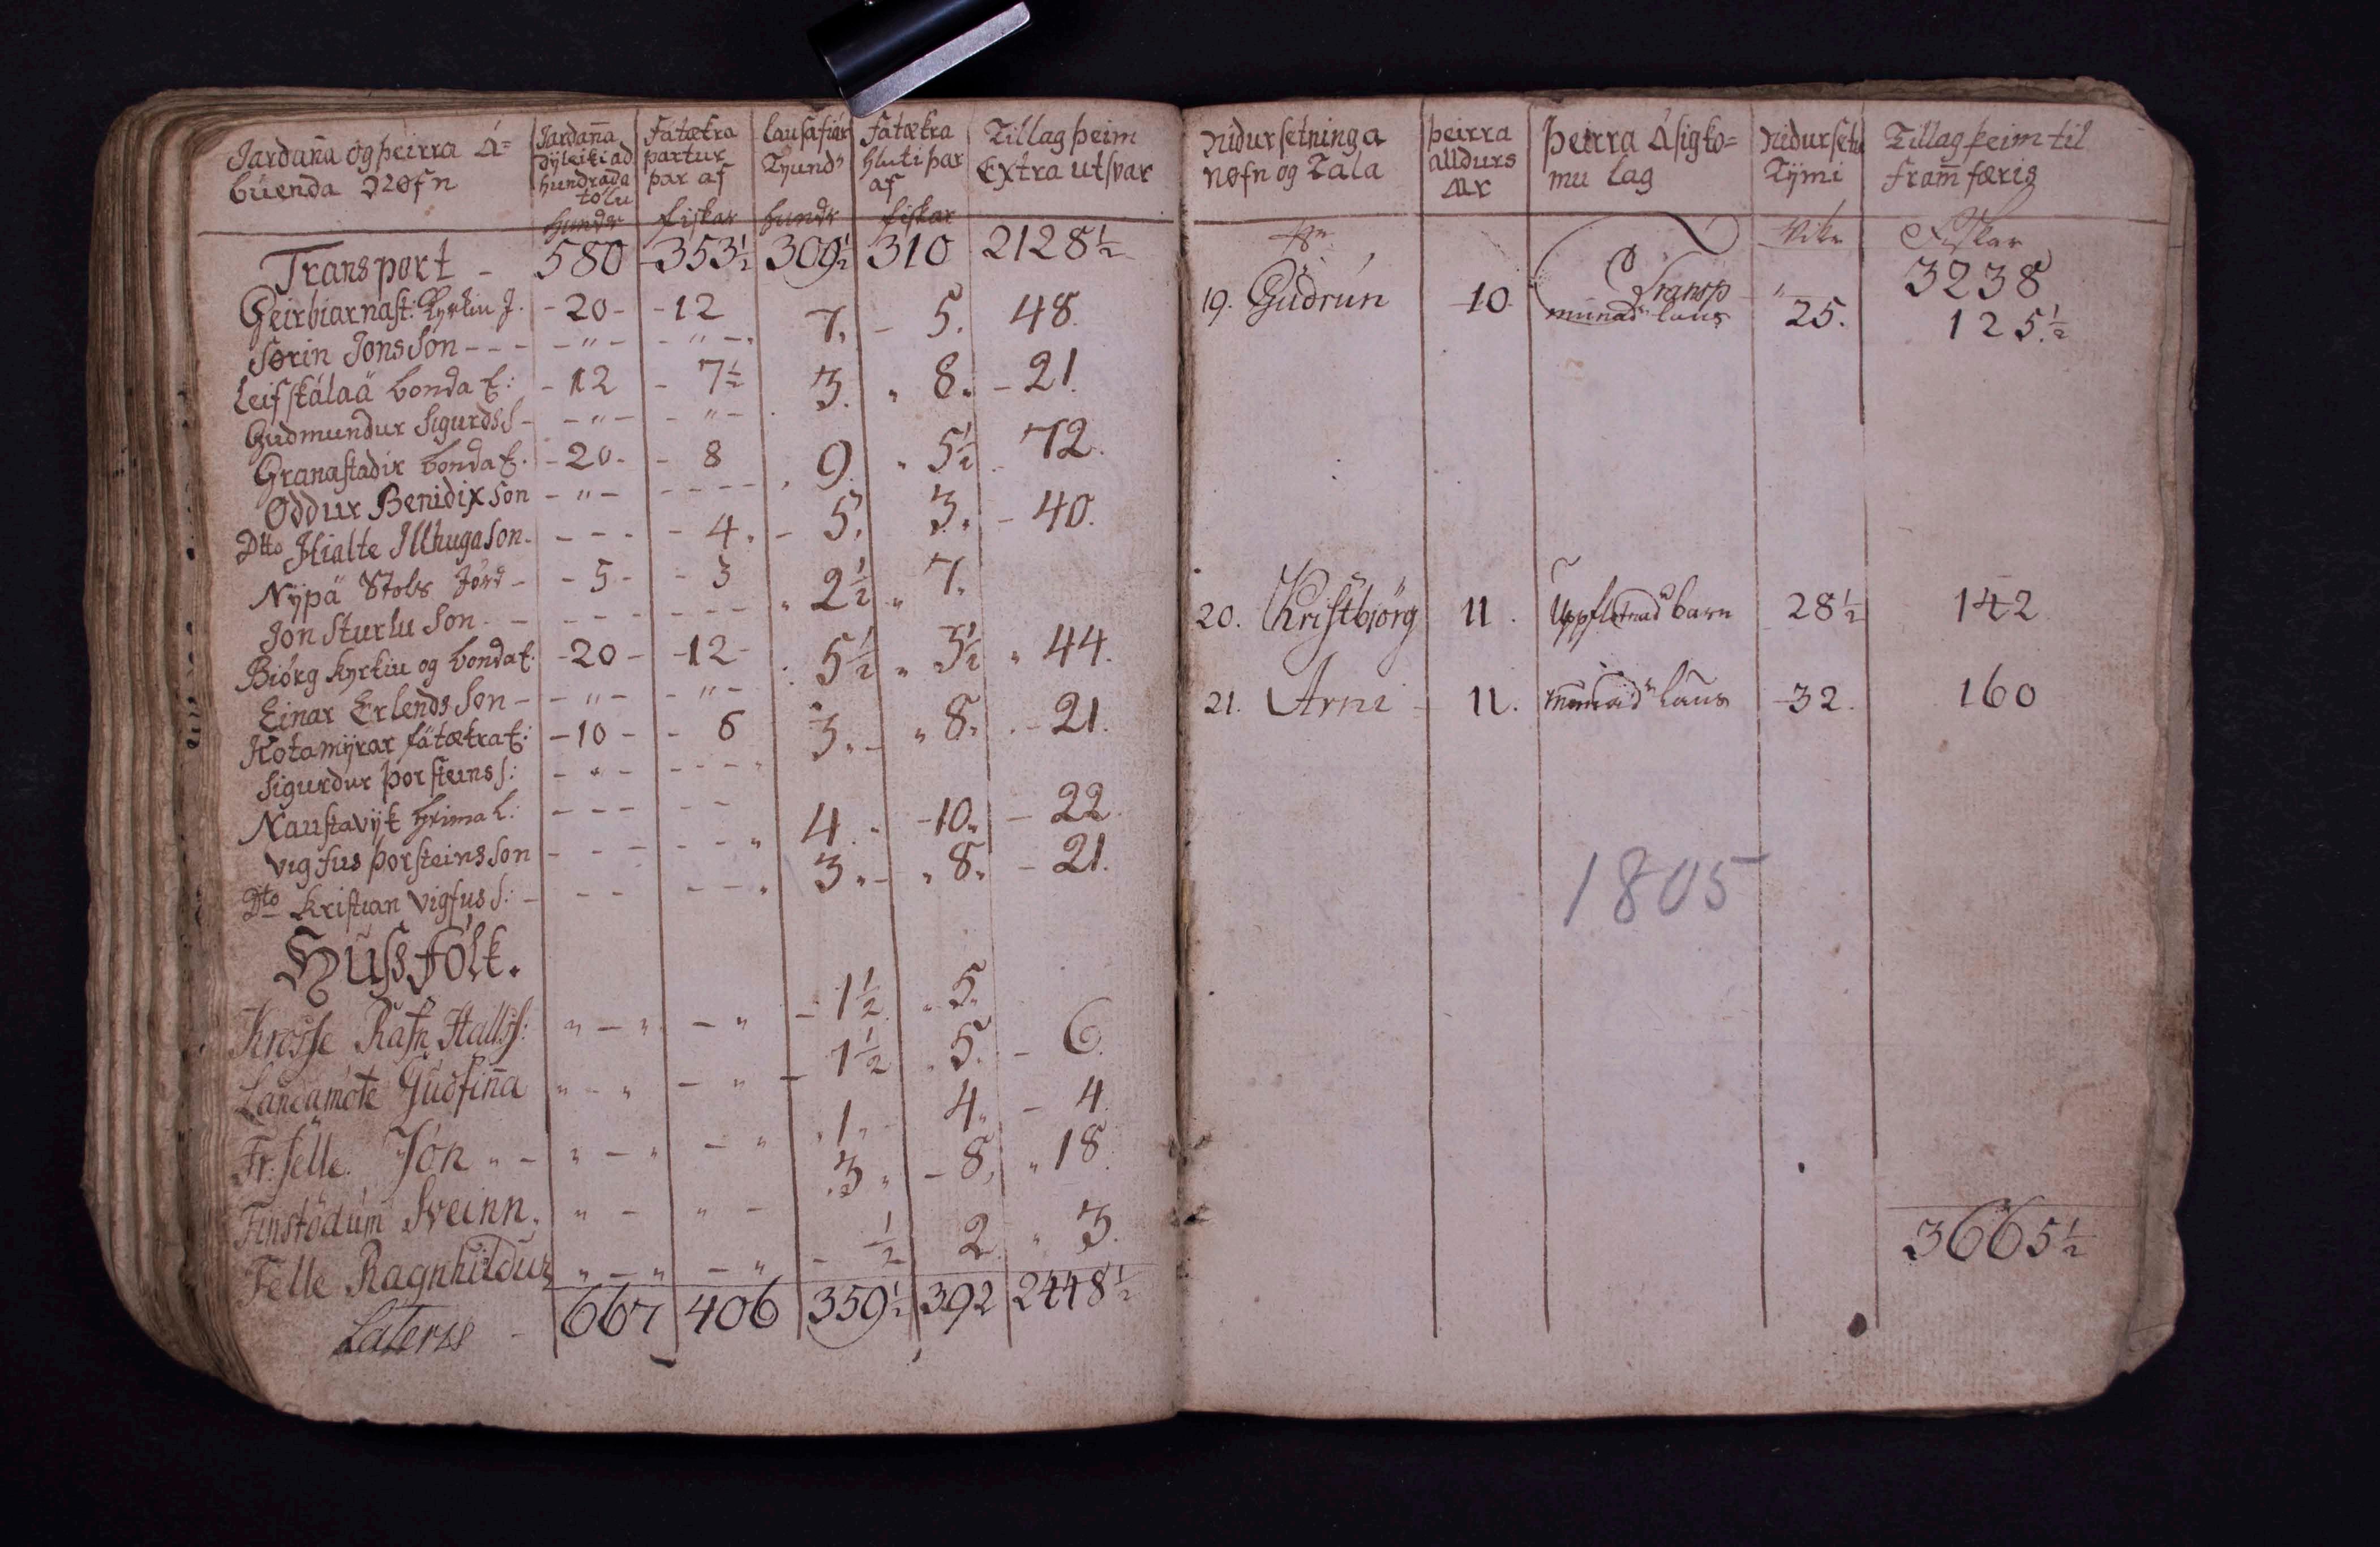 Jardaña og þeirra Á=
büenda Nøfn
Jardaña
dýleiki ad
hundrada
tólu
hundr
Fátækra
partur
þar af
fiskar
lausafiár
Tyund
hundr
Fátækra
hluti þar
af
fiskar
Tillag þeim
Extra utsvar
Transport - 580 353½ 309½ 310 2128½
Geirbiarnast: Kyrkiu J. - 20 - - 12 7. - 5. 48.
Sørin Jons Son - - - - " - - " -
Leifskálaä bonda E: - 12 - 7½ 3. " 8. - 21.
Gudmundur Sigurds S - - " - - " -
Granastadir bonda E. - 20. - 8 9. " 5½ 72.
Oddur Benidix son - " - - - - -
Dtto Hialte Illhugason. - - - - 4. - 5. 3. - 40.
Nýpä Stols Jörd - - 5 - - 3 2½ " 7.
Jon Sturlu Son - - - - - - - -
Biörg kyrkiu og bonda E. - 20 - - 12 - 5½ " 3½ " 44.
Einar Erlends Son - - " - - " -
Kotamýrar fátætra E: - 10 - - 6 3. - " 8. - 21.
Sigurdur Þorsteins S: - " - - - - "
Naustavýk Grima L: - - - - - 4. - 10. - 22.
Vigfus Þorsteinsson - - - - - - " 3. - " 8. - 21.
Dto Kristian Vigfus S: - - - - - - "
Huss Fólk.
Krosse Rafn Halls S: " - " - " - 1½ " 5.
Landamóte Gudfiña " - " - " - 1½ " 5. - 6.
Fr: felle. Jón " - " - " - " " 1 " 4. - 4.
Finstödum Sveinn. " - " - 3 " - 8. " 18.
Felle Ragnhildur " - " - " - ½ 2 " 3.
Laterss - 667 406 359½ 392 2448½
Nidursetninga
nøfn og Tala
þeirra
alldurs
Ár
Þeirra Ásigko=
mu lag
Nidursetu
Tými
Vikr
Tillag þeim til
fram̄færis
Fiskar
Transp " 3238
19. Gudrún 10. munad laus 25. 125.½
20. Kristbiörg 11. Uppflosnad barn 28½ 142
21. Arni - 11. munad laus 32. 160
1805
3665½